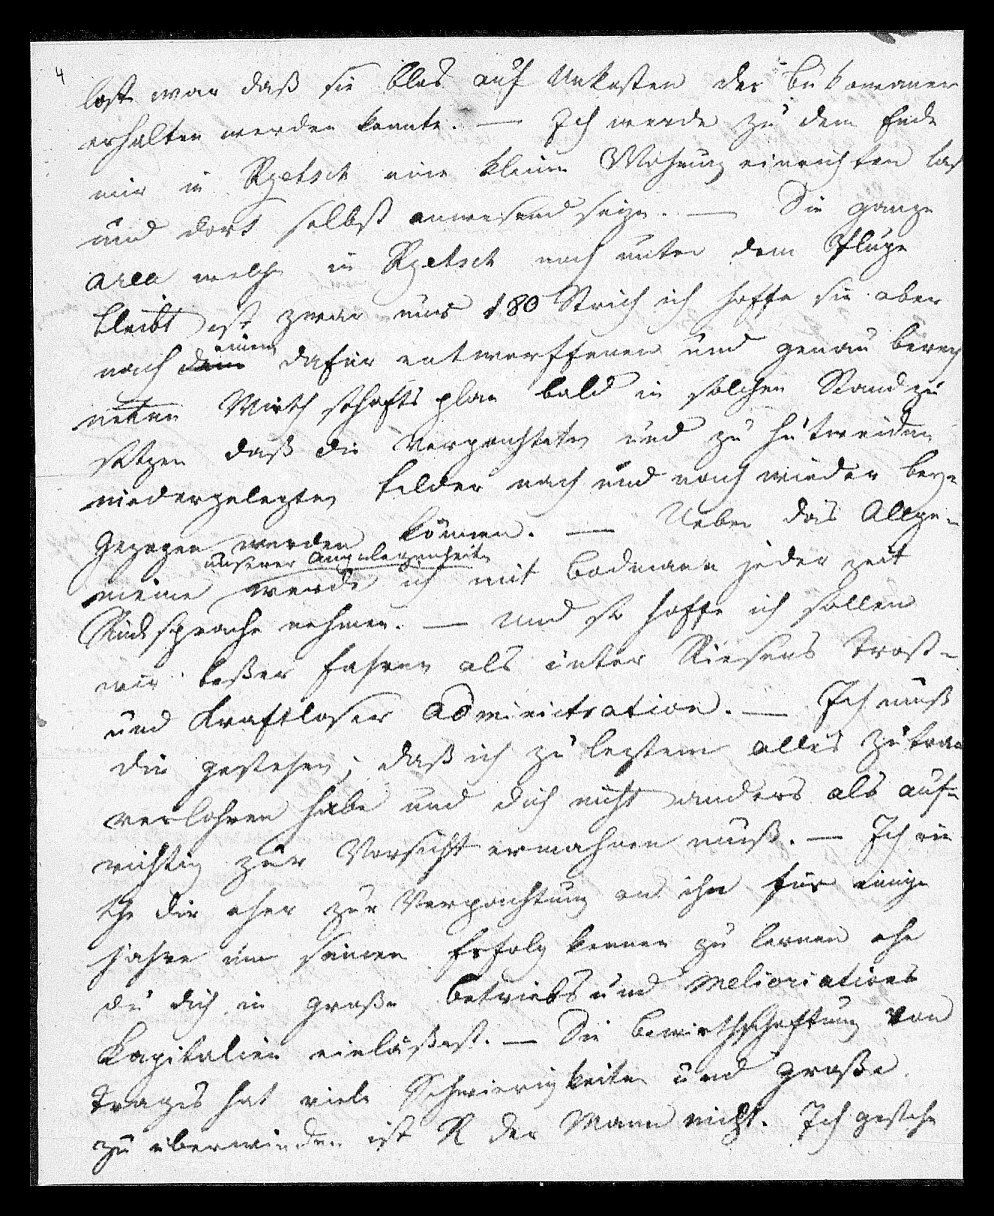 4
lost war daß sie blos auf Unkosten der Bukowaner
erhalten werden konnte. — Ich werde zu dem Ende
mir in Rzetsch eine kleine Wohnung einrichten las
und dort selbst anwesend seyn. — Die ganze
area welche in Rzetsch noch unter dem Pfluge
bleibt ist zwar nur 180 Strich ich hoffe sie aber
einem
nach dem dafür entworffenen und genau berech
neten Wirthschafts plan bald in solchen Stand zu
setzen daß die verpachteten und zu Hutweiden
niedergelegten Felder nach und nach wieder bey=
gezogen werden können. — Ueber das Allge=
unserer Angelegenheiten
meine werde ich mit Bodmann jeder zeit
Rücksprache nehmen. — Und so hoffe ich sollen
wir beßer fahren als unter Riesens Trost=
und Kraftloser Administration. — Ich muß
dir gestehen, daß ich zu leztem alles zutrau
verlohren habe und dich nicht anders als auf=
richtig zur Vorsicht ermahnen muß. — Ich rie
the dir eher zur Verpachtung an ihn für einige
Jahre um seinen Erfolg kennen zu lernen ehe
du dich in große Betriebs und Meliorations
Kapitalien einläßest. — Die Bewirthschaftung von
Trages hat viele Schwierigkeiten und große
zu überwinden ist R der Mann nicht. Ich gestehe